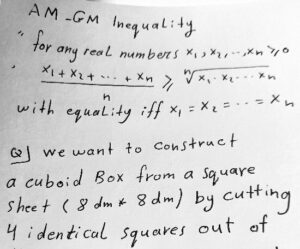 AM-GM Inequality
" for any real numbers x₁, x₂, ..., xₙ ≥ 0
x₁ + x₂ + ... + xₙ / n ≥ ⁿ√x₁. x₂. ... xₙ
with equality iff x₁ = x₂ = ... = xₙ
Q] we want to construct
a cuboid Box from a square
sheet (8 dm * 8 dm) by cutting
4 identical squares out of